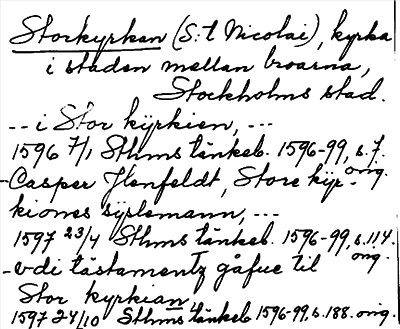 Storkyrkan (S:t Nicolai), kyrka
i staden mellan broarna,
Stockholms stad.
-- i Stor kÿrkien, ---
1596 7/1 Sthms tänkeb. 1596-99, s. 7. orig.
- Casper Flenfeldt, Store kÿr-
kiones sÿslemann, ---
1597 23/4 Sthms tänkeb. 1596-99, s. 114. orig.
- vdi tästamentz gåfue til
Stor kyrkian
1597 24/10 Sthms tänkeb 1596-99, s. 188. orig.